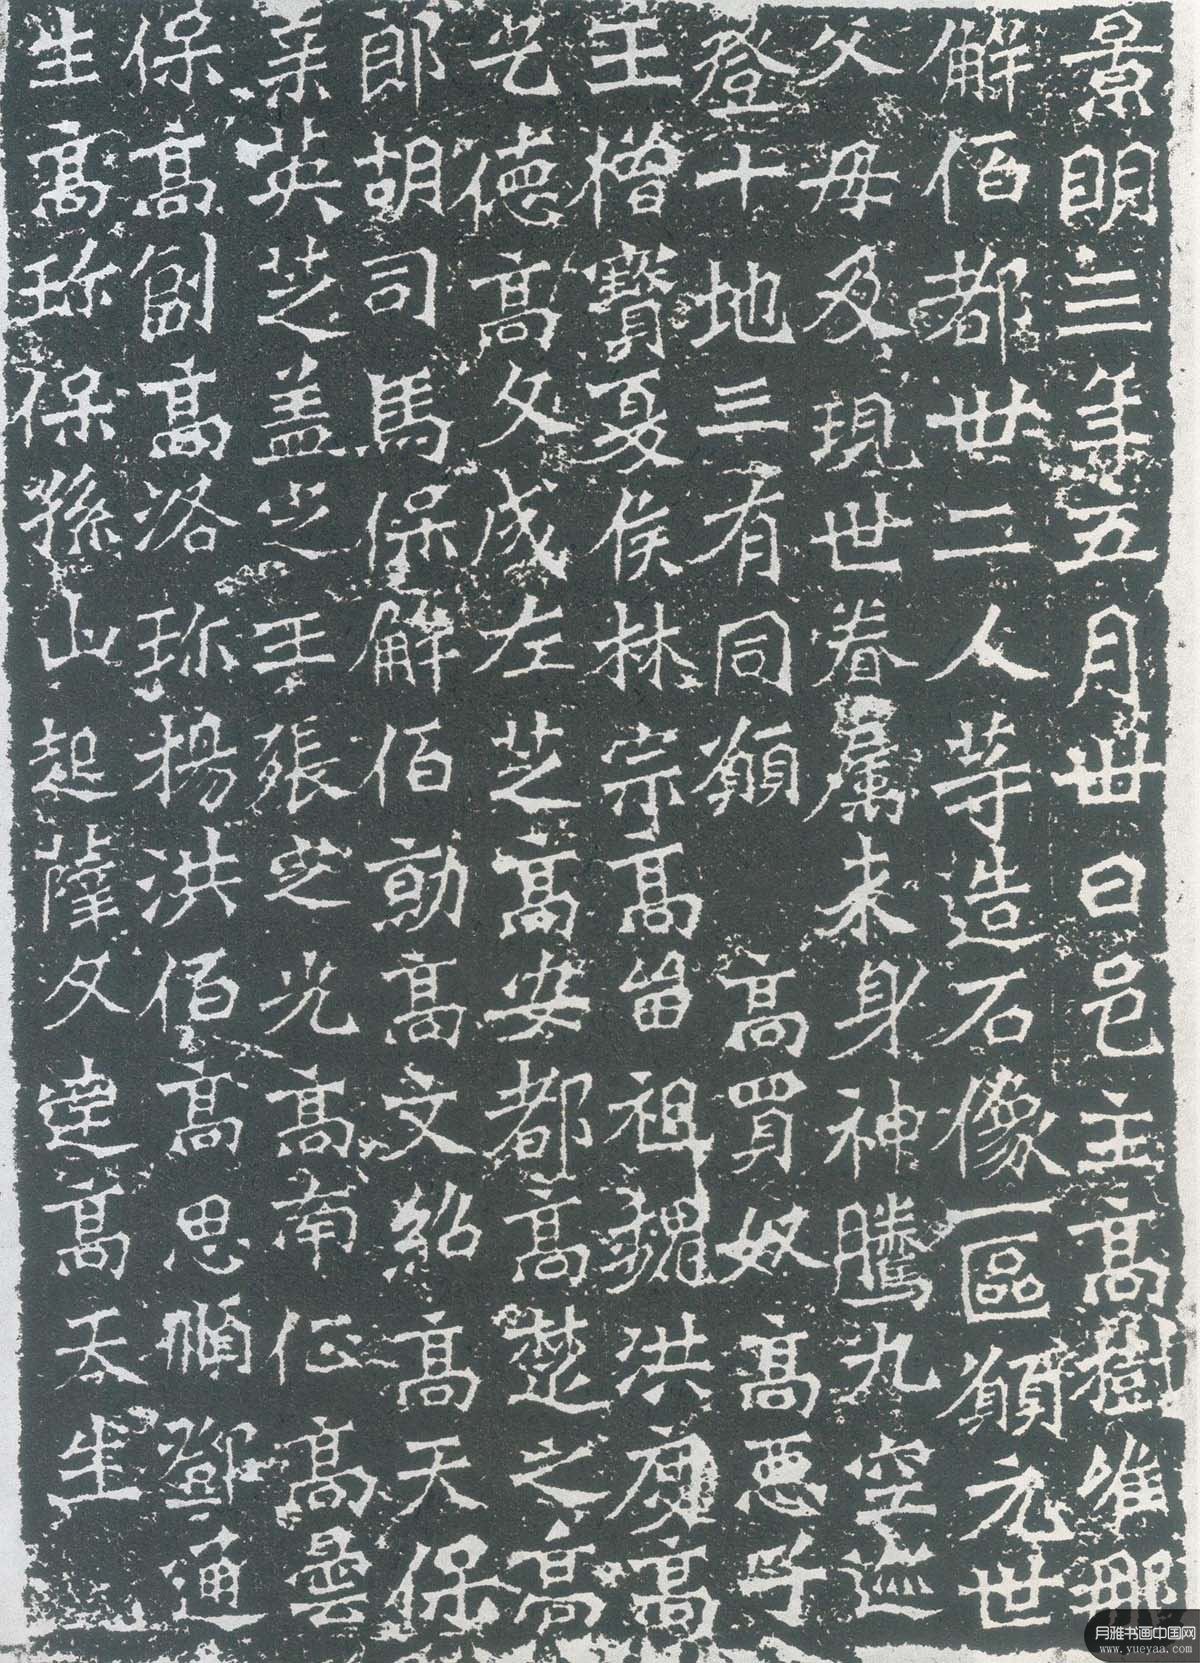 景明三年五月卅日邑主高樹唯那
解佰都卅二人等造石像一區願元世
父母及現世眷属来身神騰九空迹
登十地三有同願 高買奴高惡子
王僧寶夏侯林宗高留祖魏洪度高
乞德高文成左芝高安都高楚之高
郎胡司馬保解佰勛高文紹高天保
英芝盖之王張芝光高南 高曇
保高高洛珎楊洪佰高思順 通
生高珎保孫山起薩文達高天生
月雅书画中国网
www.yueyaa.com